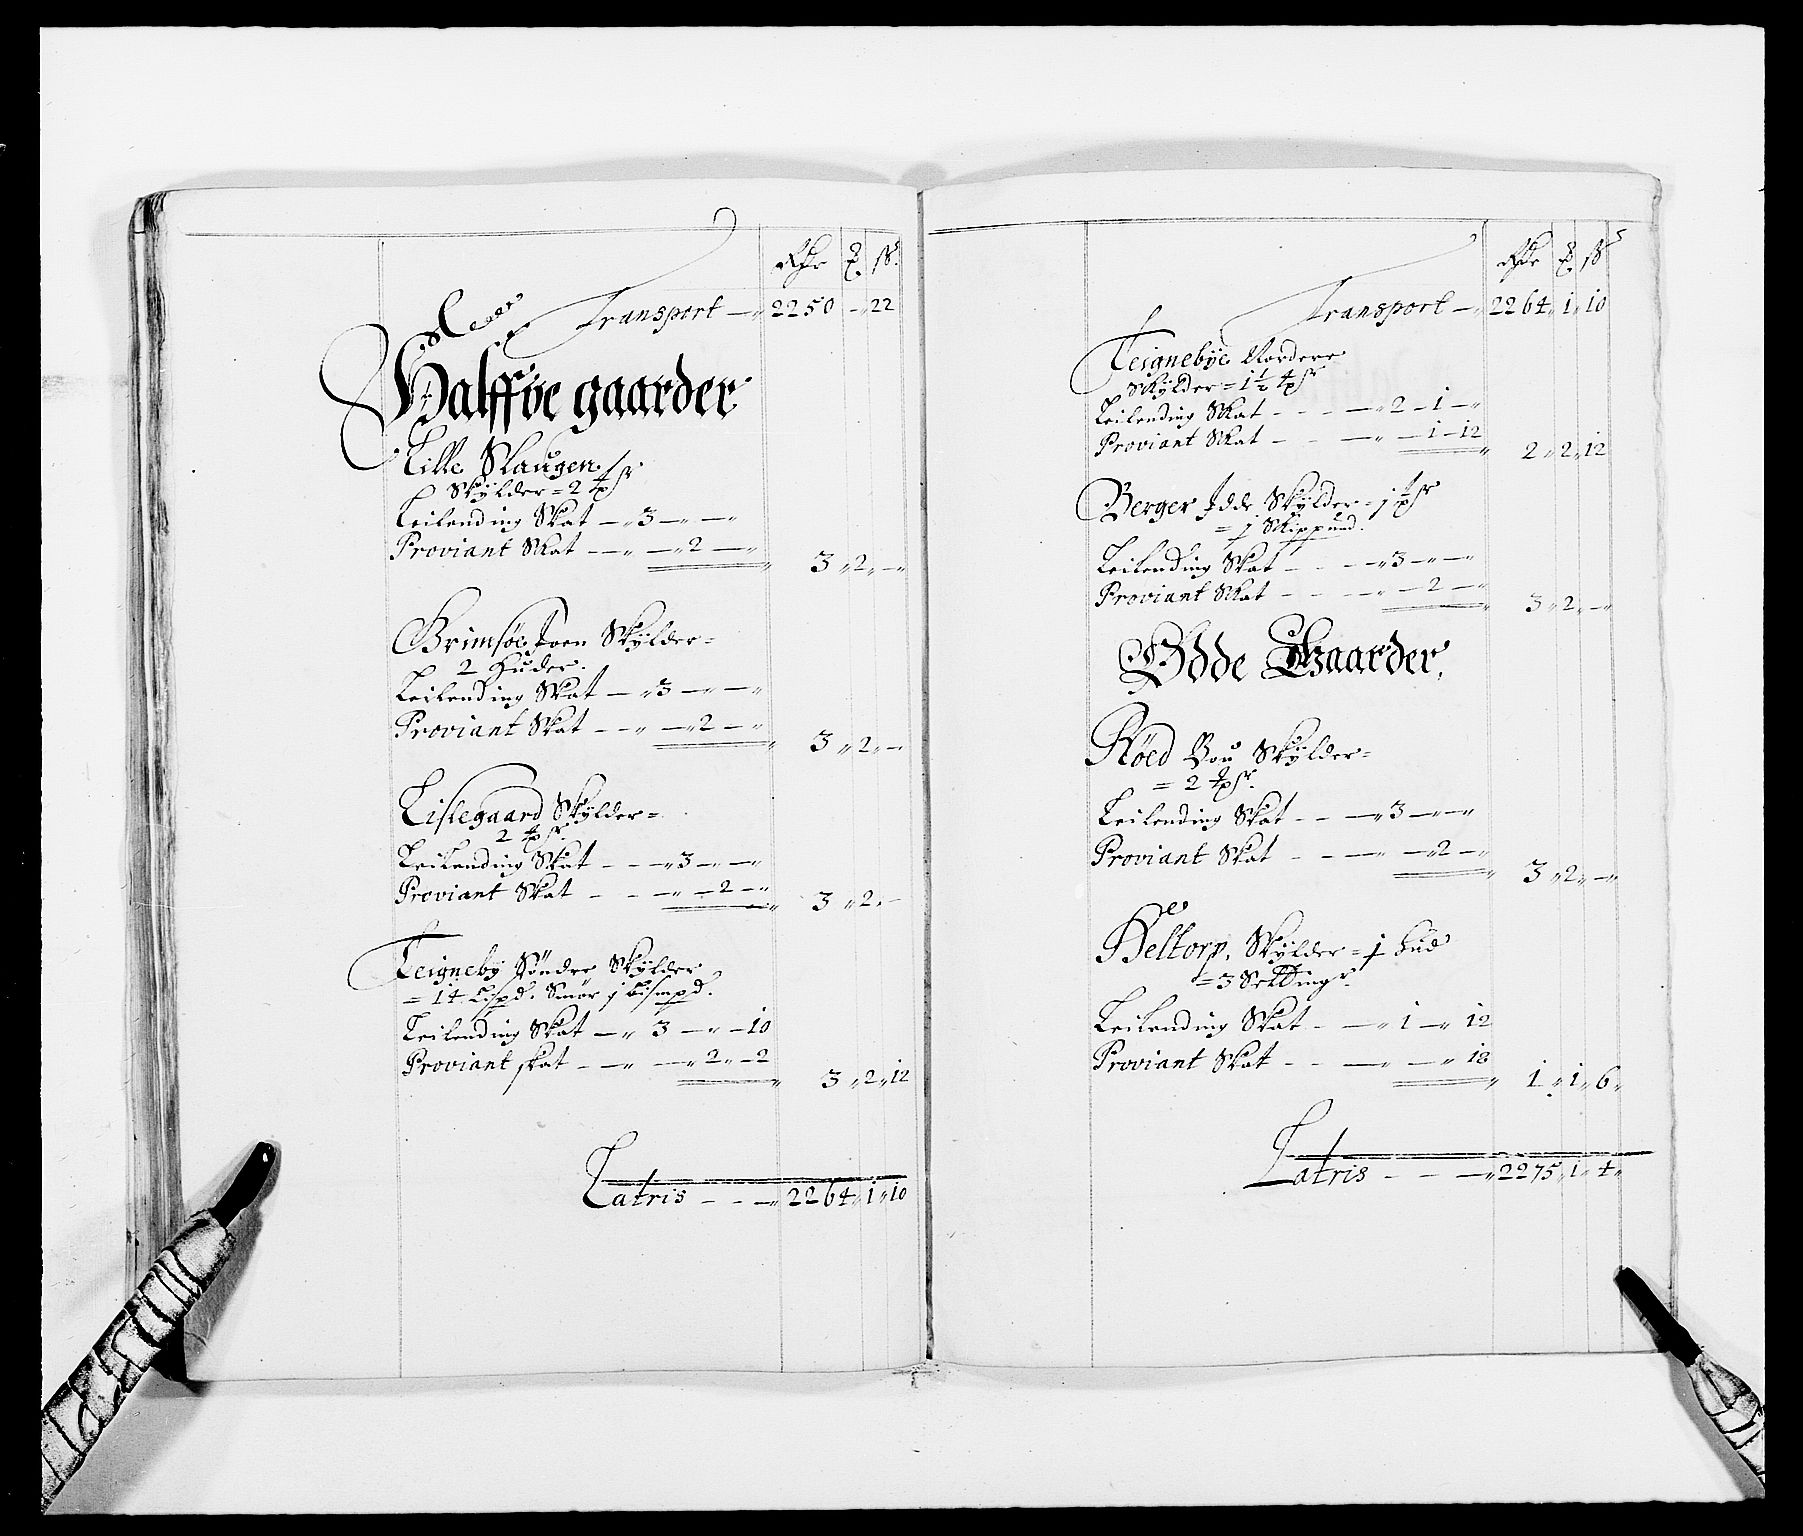 Rdr ß
Transport — 2250 - 22
Halffve gaarder
Lille Slaugen
Skylder = 2 ℔ sr
Leilending Skat — 3 — —
Proviant Skat — — 2 —
3 „ 2 „ —
Grimsøe Joen Skylder =
2 huder.
Leilending Skat — 3 — —
Proviant Skat — — 2 —
3 „ 2 „ —
Lislegaard Skylder =
2 ℔ sr.
Leilending Skat — 3 — —
Proviant Skat — — 2 —
3 „ 2 „ —
Teigneby Søndre Skylder
= 14 Lispd. Smør j bismpd.
Leilending Skat — 3 — 10
Proviant skat — — 2 — 2
3 „ 2 „ 12
Latris — — 2264 „ 1 „ 10
Rdr ß
Transport — 2264 „ 1 „ 10
Teignebye Nordere
Skylder = 1 ½ ℔ sr
Leilending Skat — 2 — 1 —
Proviant Skat — — 1 — 12
2 „ 2 „ 12
Berger Idde Skylder = j ℔ sr
= j Skippund.
Leilending Skat — 3 — —
Proviant Skat — — 2 —
3 „ 2 „ —
Ødde Gaarder.
Røed Skylder =
= 2 ℔ sr.
Leilending Skat — 3 — —
Proviant Skat — — 2 —
3 „ 2 „ —
Heltorp, Skylder = j hud
= 3 Settingr.
Leilending Skat — 1 — 12
Proviant Skat — — 18
1 „ 1 „ 6
Latris — — 2275 „ 1 „ 4